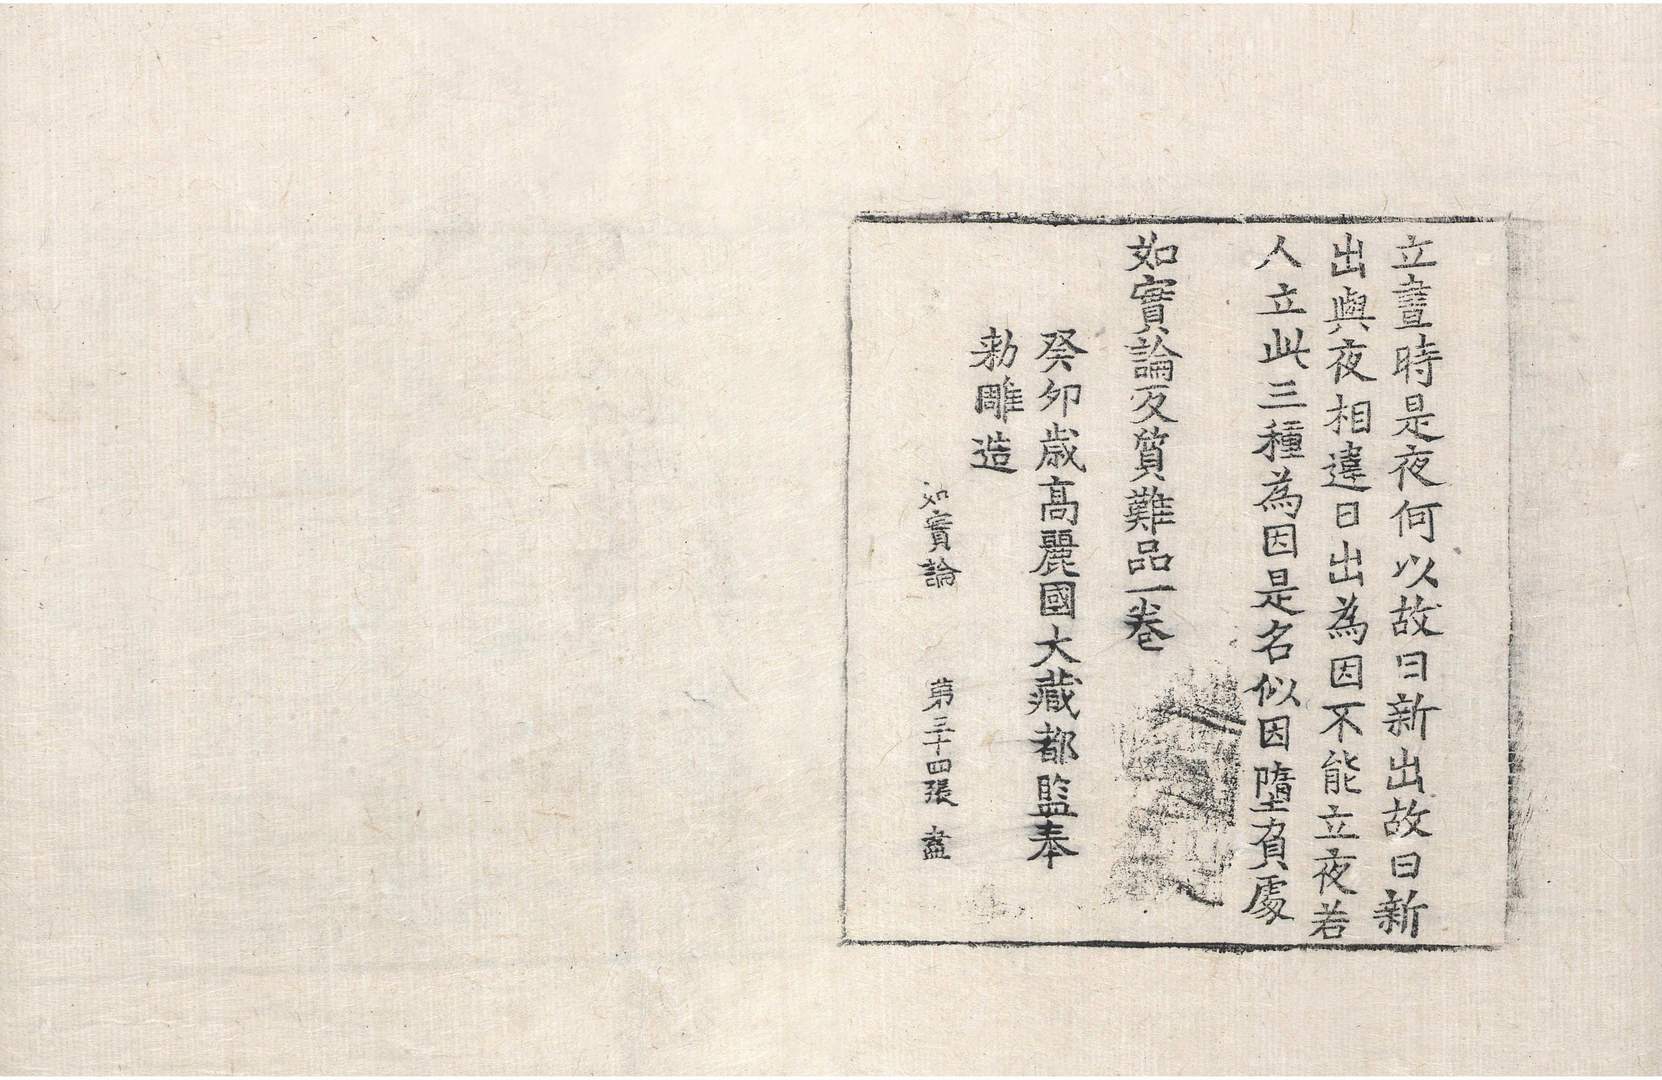 立晝時是夜何以故日新出故日新
出與夜相違日出為因不能立夜若
人立此三種為因是名似因墮負處
如實論反質難品一卷
癸卯歲高麗國大藏都監奉
勅雕造
如實論 第三十四張 盡